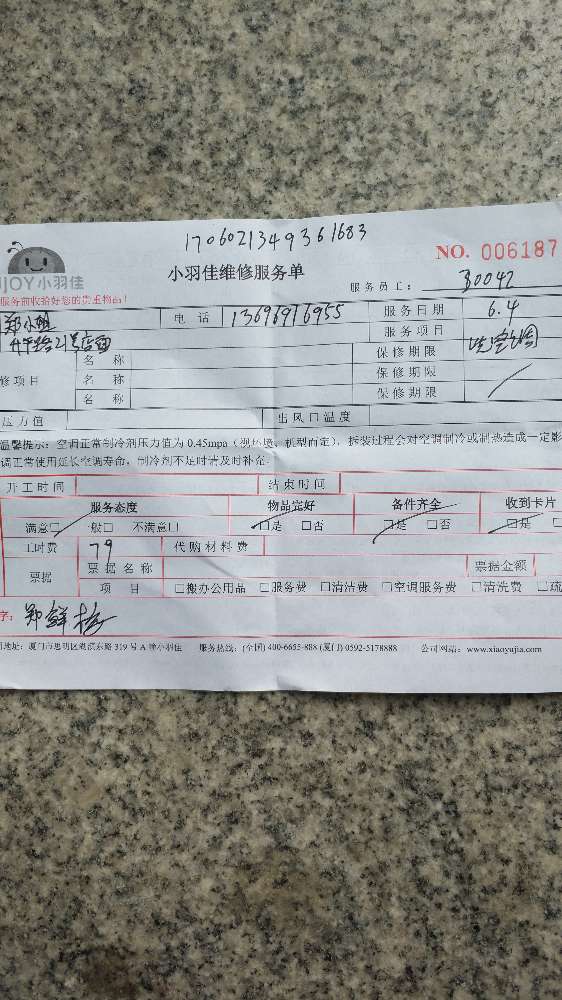 1706021349361683
NO. 006187
JOY小羽佳
小羽佳维修服务单
服务员工: 30042
服务前收拾好您的贵重物品!
郑小姐 电 话 13696916955 服务日期 6.4
21号店面 服务项目 洗空调
名 称 保修期限
修项目 名 称 保修期限
名 称 保修期限
压力值 出风口温度
温馨提示:空调正常制冷剂压力值为0.45mpa(视环境、机型而定),拆装过程会对空调制冷或制热造成一定影
调正常使用延长空调寿命,制冷剂不足时请及时补充。
开工时间 结束时间
服务态度 物品完好 备件齐全 收到卡片
满意□ 一般□ 不满意□ □是 □否 □是 □否 □是
工时费 79 代购材料费
票据 票据名称 票据金额
项 目 □搬办公用品 □服务费 □清洁费 □空调服务费 □清洗费 □疏
字: 郑鲜梅
司地址: 厦门市思明区湖滨东路319号A幢小羽佳 服务热线: (全国) 400-6655-888 (厦门) 0592-5178888 公司网站: www.xiaoyujia.com